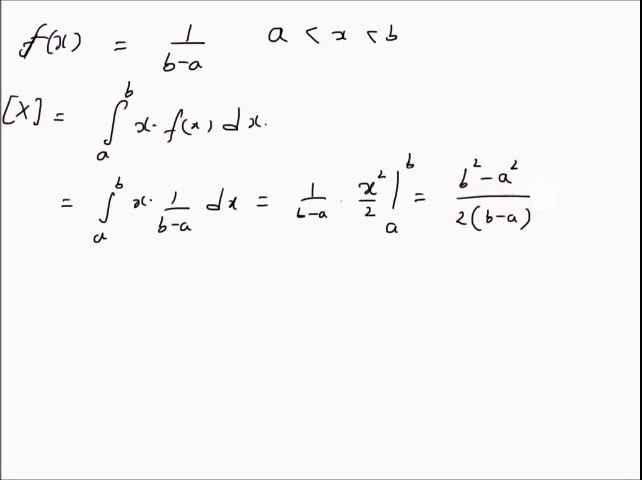 f(x) = 1/(b-a) a < x < b
[X] = ∫_a^b x · f(x) dx.
= ∫_a^b x · 1/(b-a) dx = 1/(b-a) · x²/2 |_a^b = (b² - a²)/(2(b-a))